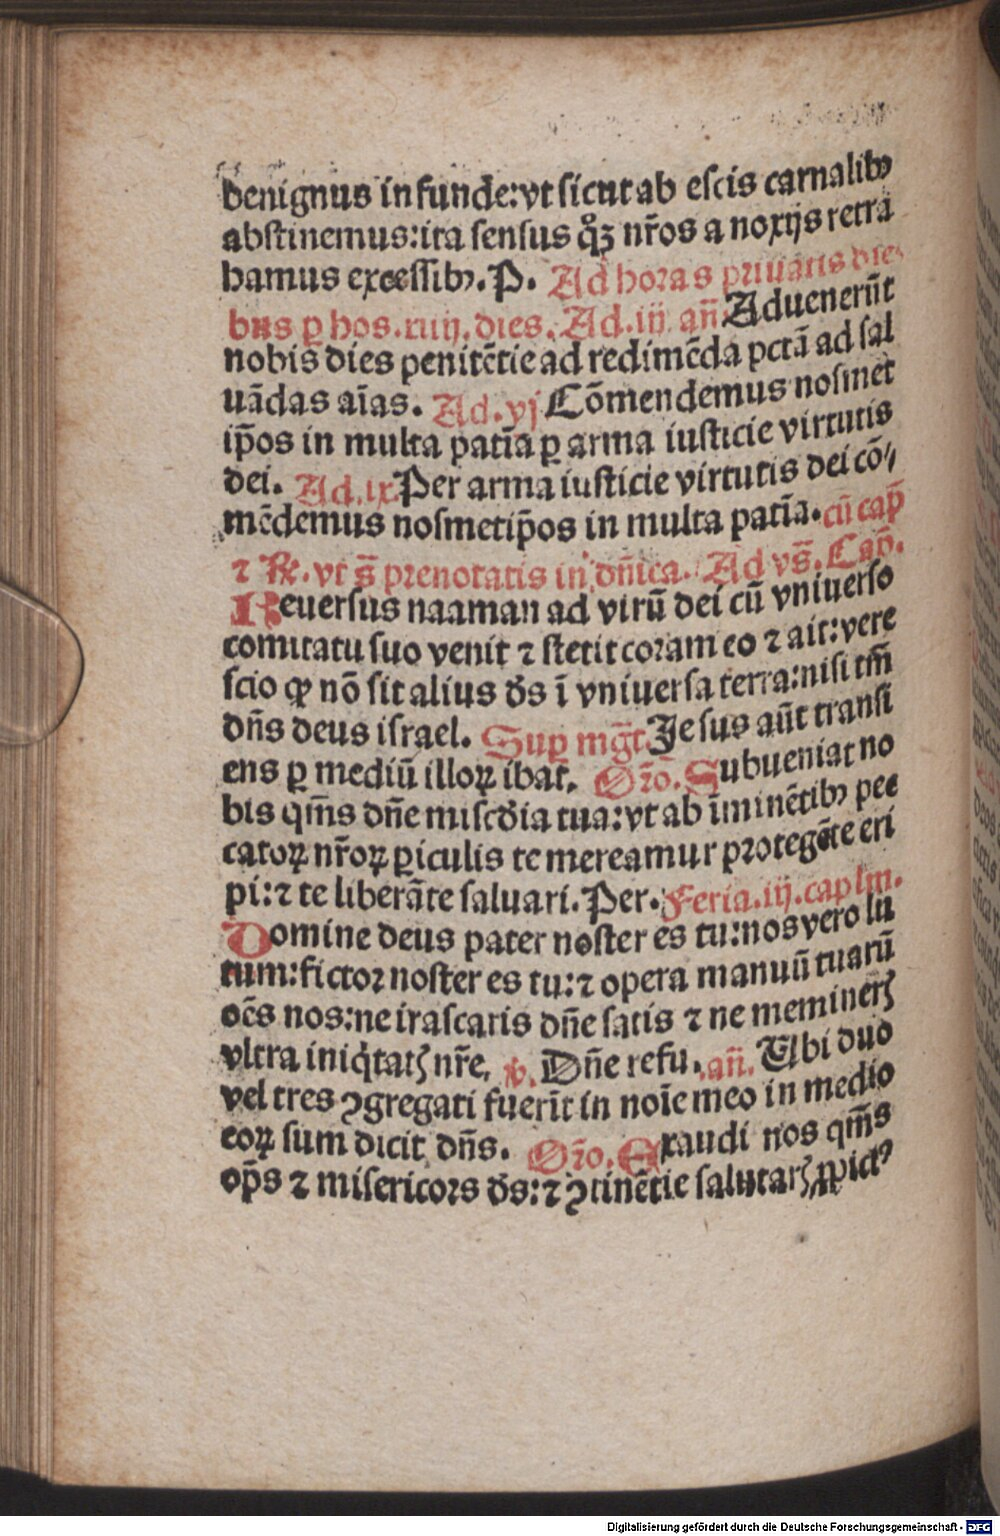 benignus infunde:vt sicut ab escis carnalibꝰ
abstinemus:ita sensus qͦꝫ nr̄os a noxijs retra
hamus excessibꝰ. P. Ad horas priuatis die
bus ꝑ hos .iiij. dies. Ad .iij. an̄ Aduenerūt
nobis dies penitētie ad redimēda pctā ad sal
uādas aīas. Ad .vj Cōmendemus nosmet
ip̄os in multa patīa ꝑ arma iusticie virtutis
dei. Ad .ix Per arma iusticie virtutis dei cō
mēdemus nosmetip̄os in multa patīa. cū cap̄
⁊ ℟. vt s̄ prenotatis in dn̄ica. Ad vs̄. Cap̄.
Reuersus naaman ad virū dei cū vniuerso
comitatu suo venit ⁊ stetit coram eo ⁊ ait:vere
scio ꝙ nō sit alius ds̄ ī vniuersa terra:nisi tm̄
dn̄s deus israel. Suꝑ mḡt Jesus aūt transi
ens ꝑ mediū illoꝝ ibat. Or̄o. Subueniat no
bis qm̄s dn̄e misc̄dia tua:vt ab īminētibꝰ pec
catoꝝ nr̄oꝝ ꝑiculis te mereamur protegēte eri
pi:⁊ te liberāte saluari. Per. Feria .iij. caplm̄.
Domine deus pater noster es tu:nos vero lu
tum:fictor noster es tu:⁊ opera manuū tuarū
oēs nos:ne irascaris dn̄e satis ⁊ ne memineris
vltra iniq̇tatis nr̄e. ℣. Dn̄e refu. an̄. Ubi duo
vel tres ꝯgregati fuerīt in noīe meo in medio
eoꝝ sum dicit dn̄s. Or̄o. Exaudi nos qm̄s
op̄s ⁊ misericors ds̄:⁊ ꝯtinētie salutaris